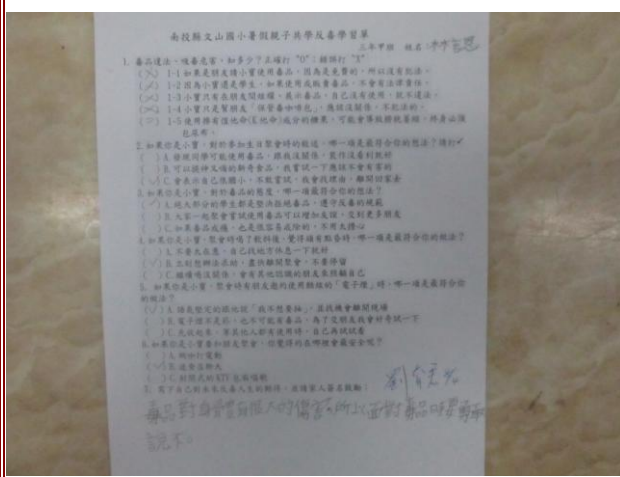 南投縣文山國小暑假親子共學反毒學習單
三年甲班 姓名:林
1. 毒品違法、吸毒危害,知多少?正確打"O";錯誤打"X"
(X) 1-1 如果是朋友請小寶使用毒品,因為是免費的,所以沒有犯法。
(X) 1-2 因為小寶還是學生,如果使用或販賣毒品,不會有法律責任。
(X) 1-3 小寶只有在朋友間媒轉、毒品,自己沒有使用,就不違法。
(X) 1-4 小寶只是幫朋友「保管毒咖啡包」,應該沒關係,不犯法的。
( ) 1-5 使用摻有愷他命(K他命)成分的糖果,可能會導致膀胱萎縮,終身必須
包尿布。
2. 如果你是小寶,對於參加生日聚會時的敘述,哪一項是最符合你的想法?請打✓
( ) A. 發現同學可能使用毒品,跟我沒關係,裝作沒看到就好
( ) B. 可以提神又嗨的新奇食品,我嘗試一下應該不會有害的
(✓) C. 會表示自己很膽小,不敢嘗試,我會找理由,離開回家去
3. 如果你是小寶,對於毒品的態度,哪一項最符合你的想法?
(✓) A. 絕大部分的學生都是堅決拒絕毒品,遵守反毒的規範
( ) B. 大家一起聚會嘗試使用毒品可以增加友誼,交到更多朋友
( ) C. 如果毒品成癮,也是很容易戒除的,不用太擔心
4. 如果你是小寶,聚會時喝了飲料後,覺得頭有點昏時,哪一項是最符合你的想法?
( ) A. 不要太在意,自己找地方休息一下就好
(✓) B. 立刻想辦法求救,盡快離開聚會,不要停留
( ) C. 繼續喝沒關係,會有其他認識的朋友來照顧自己
5. 如果你是小寶,聚會時有朋友邀約使用酷炫的「電子煙」時,哪一項是最符合你
的做法?
(✓) A. 語氣堅定的跟他說「我不想要抽」,並找機會離開現場
( ) B. 電子煙不是菸,也不可能有毒品,為了交朋友我會好奇試一下
( ) C. 先收起來,等其他人都有使用時,自己再試試看
6. 如果你是小寶要和朋友聚會,你覺得在哪裡會最安全呢?
( ) A. 網咖打電動
(✓) B. 速食店聊天
( ) C. 封閉式的KTV包廂唱歌
7. 寫下自己對未來反毒人生的期待,並請家人簽名鼓勵:
毒品對身體有很大的傷害所以面對毒品時要勇敢
說不。